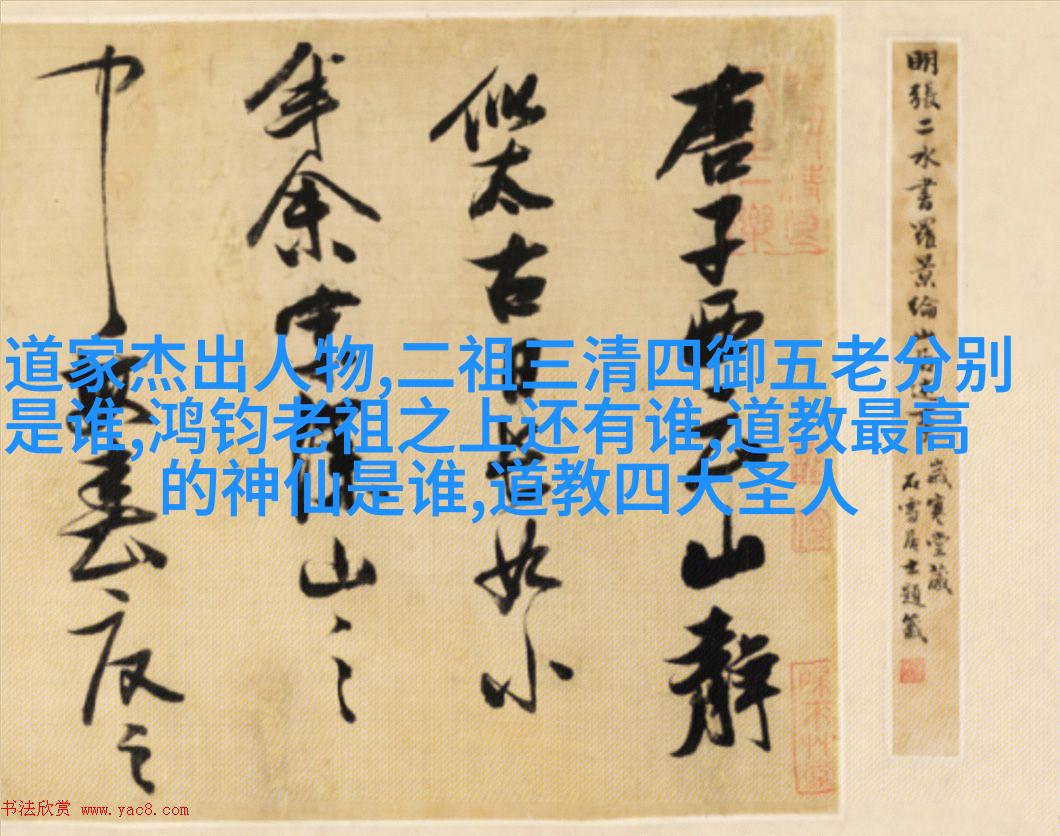 明張二水書羅景綸山
歲寒堂藏
石雪居士題籤
唐子西云山靜
似太古日長如小
年余家深山之
中春夏之
道家杰出人物,二祖三清四御五老分别
是谁,鸿钧老祖之上还有谁,道教最高
的神仙是谁,道教四大圣人
书法欣赏 www.yac8.com